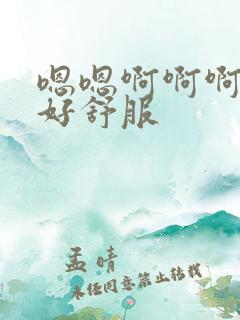 嗯嗯啊啊啊
好舒服
孟晴
未经同意禁止转载